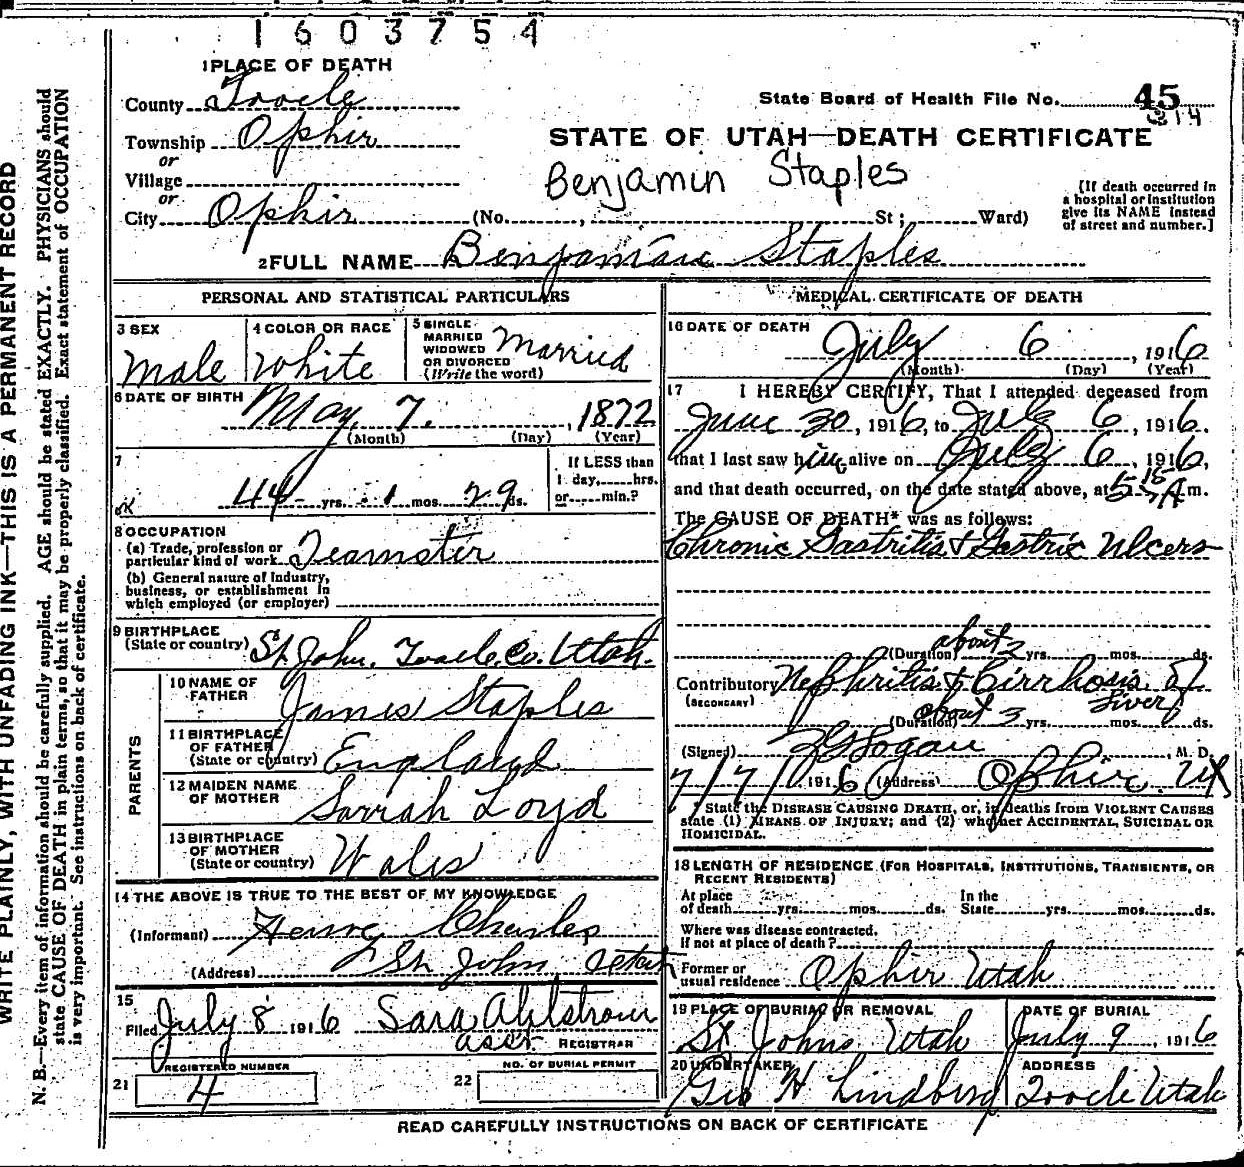 1603754
1 PLACE OF DEATH
County Tooele
State Board of Health File No. 45
314
Township Ophir
or
Village
or
City Ophir (No. , St; Ward)
STATE OF UTAH—DEATH CERTIFICATE
Benjamin Staples
[If death occurred in
a hospital or institution
give its NAME instead
of street and number.]
2 FULL NAME Benjamin Staples
PERSONAL AND STATISTICAL PARTICULARS
3 SEX
Male
4 COLOR OR RACE
White
5 SINGLE
MARRIED
WIDOWED
OR DIVORCED
(Write the word)
Married
6 DATE OF BIRTH
May 7. , 1872
(Month) (Day) (Year)
7
44 yrs. 1 mos. 29 ds.
If LESS than
1 day, hrs.
or min.?
OK
8 OCCUPATION
(a) Trade, profession or
particular kind of work Teamster
(b) General nature of Industry,
business, or establishment in
which employed (or employer)
9 BIRTHPLACE
(State or country) St John, Tooele, Co. Utah.
PARENTS
10 NAME OF
FATHER
James Staples
11 BIRTHPLACE
OF FATHER
(State or country) England
12 MAIDEN NAME
OF MOTHER
Sarrah Loyd
13 BIRTHPLACE
OF MOTHER
(State or country) Wales
14 THE ABOVE IS TRUE TO THE BEST OF MY KNOWLEDGE
(Informant) Charles
(Address) St John Utah
15
Filed July 8 1916 Sara Ahlstrom
asst REGISTRAR
REGISTERED NUMBER
21 4
NO. OF BURIAL PERMIT
22
MEDICAL CERTIFICATE OF DEATH
16 DATE OF DEATH
July 6 , 1916
(Month) (Day) (Year)
17 I HEREBY CERTIFY, That I attended deceased from
June 30, 1916, to July 6, 1916.
that I last saw him alive on July 6, 1916,
and that death occurred, on the date stated above, at 5 15 A m.
The CAUSE OF DEATH* was as follows:
Chronic Gastritis & Gastric Ulcers
(Duration) about 2 yrs. mos. ds.
Contributory Nephritis & Cirrhosis of
(SECONDARY) Liver
(Duration) about 3 yrs. mos. ds.
(Signed) , M. D.
7/7/1916 (Address) Ophir, Ut
* State the DISEASE CAUSING DEATH, or, in deaths from VIOLENT CAUSES
state (1) MEANS OF INJURY; and (2) whether ACCIDENTAL, SUICIDAL OR
HOMICIDAL.
18 LENGTH OF RESIDENCE (FOR HOSPITALS, INSTITUTIONS, TRANSIENTS, OR
RECENT RESIDENTS)
At place In the
of death yrs. mos. ds. State yrs. mos. ds.
Where was disease contracted.
If not at place of death?
Former or
usual residence Ophir Utah
19 PLACE OF BURIAL OR REMOVAL
St Johns Utah
DATE OF BURIAL
July 9, 1916
20 UNDERTAKER
Geo H Lindberg
ADDRESS
Tooele Utah
READ CAREFULLY INSTRUCTIONS ON BACK OF CERTIFICATE
WRITE PLAINLY, WITH UNFADING INK—THIS IS A PERMANENT RECORD
N. B.—Every item of information should be carefully supplied. AGE should be stated EXACTLY. PHYSICIANS should
state CAUSE OF DEATH in plain terms, so that it may be properly classified. Exact statement of OCCUPATION
is very important. See instructions on back of certificate.